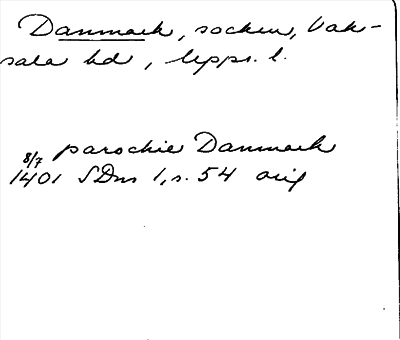 Danmark, socken, Vak-
sala hd, Upps. l.
8/7 parochie Danmark
1401 SDns 1, s. 54 orig